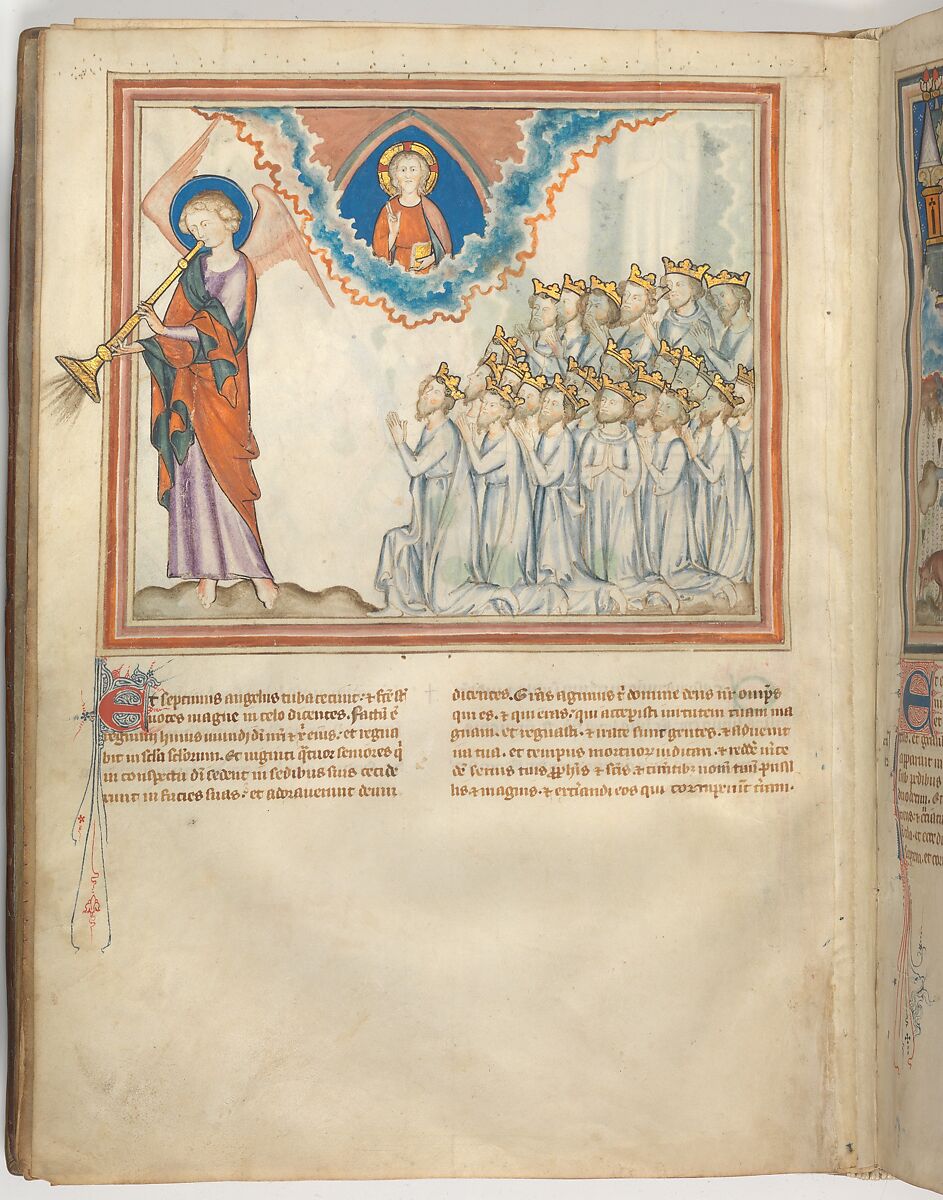 Et septimus angelus tuba cecinit: & fce st
uoces magne in celo dicentes. Factu e
regnum huius mundi dni nri & xi eius. et regna
bit in scla sclorum. Et uiginti qtuor seniores q
in conspectu di sedent in sedibus suis cecide
runt in facies suas: et adorauerunt deum
dicentes. Gras agimus t domine deus nr omps
qui es. & qui eras. qui accepisti uirtutem tuam ma
gnam. et regnasti. & irate sunt gentes. & aduenit
ira tua. et tempus mortuor iudicari. & redde mce
de seruis tuis pphis & scis. & timtibz nom tuu pusil
lis & magnis. & extiandi eos qui corruperunt tram.